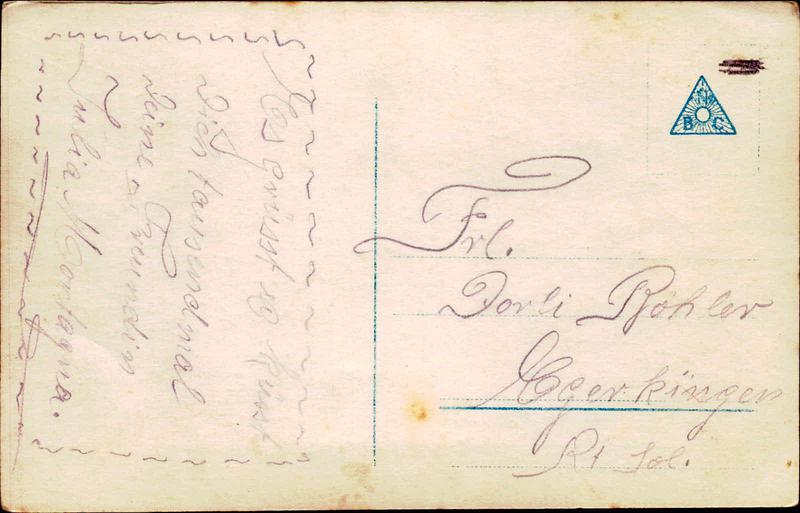 Es grüsst &
Dich tausendmal
Deine Freundin
Julia Montagna.
B C
Frl.
Dorli Röhler
Egerkingen
Kt Sol.